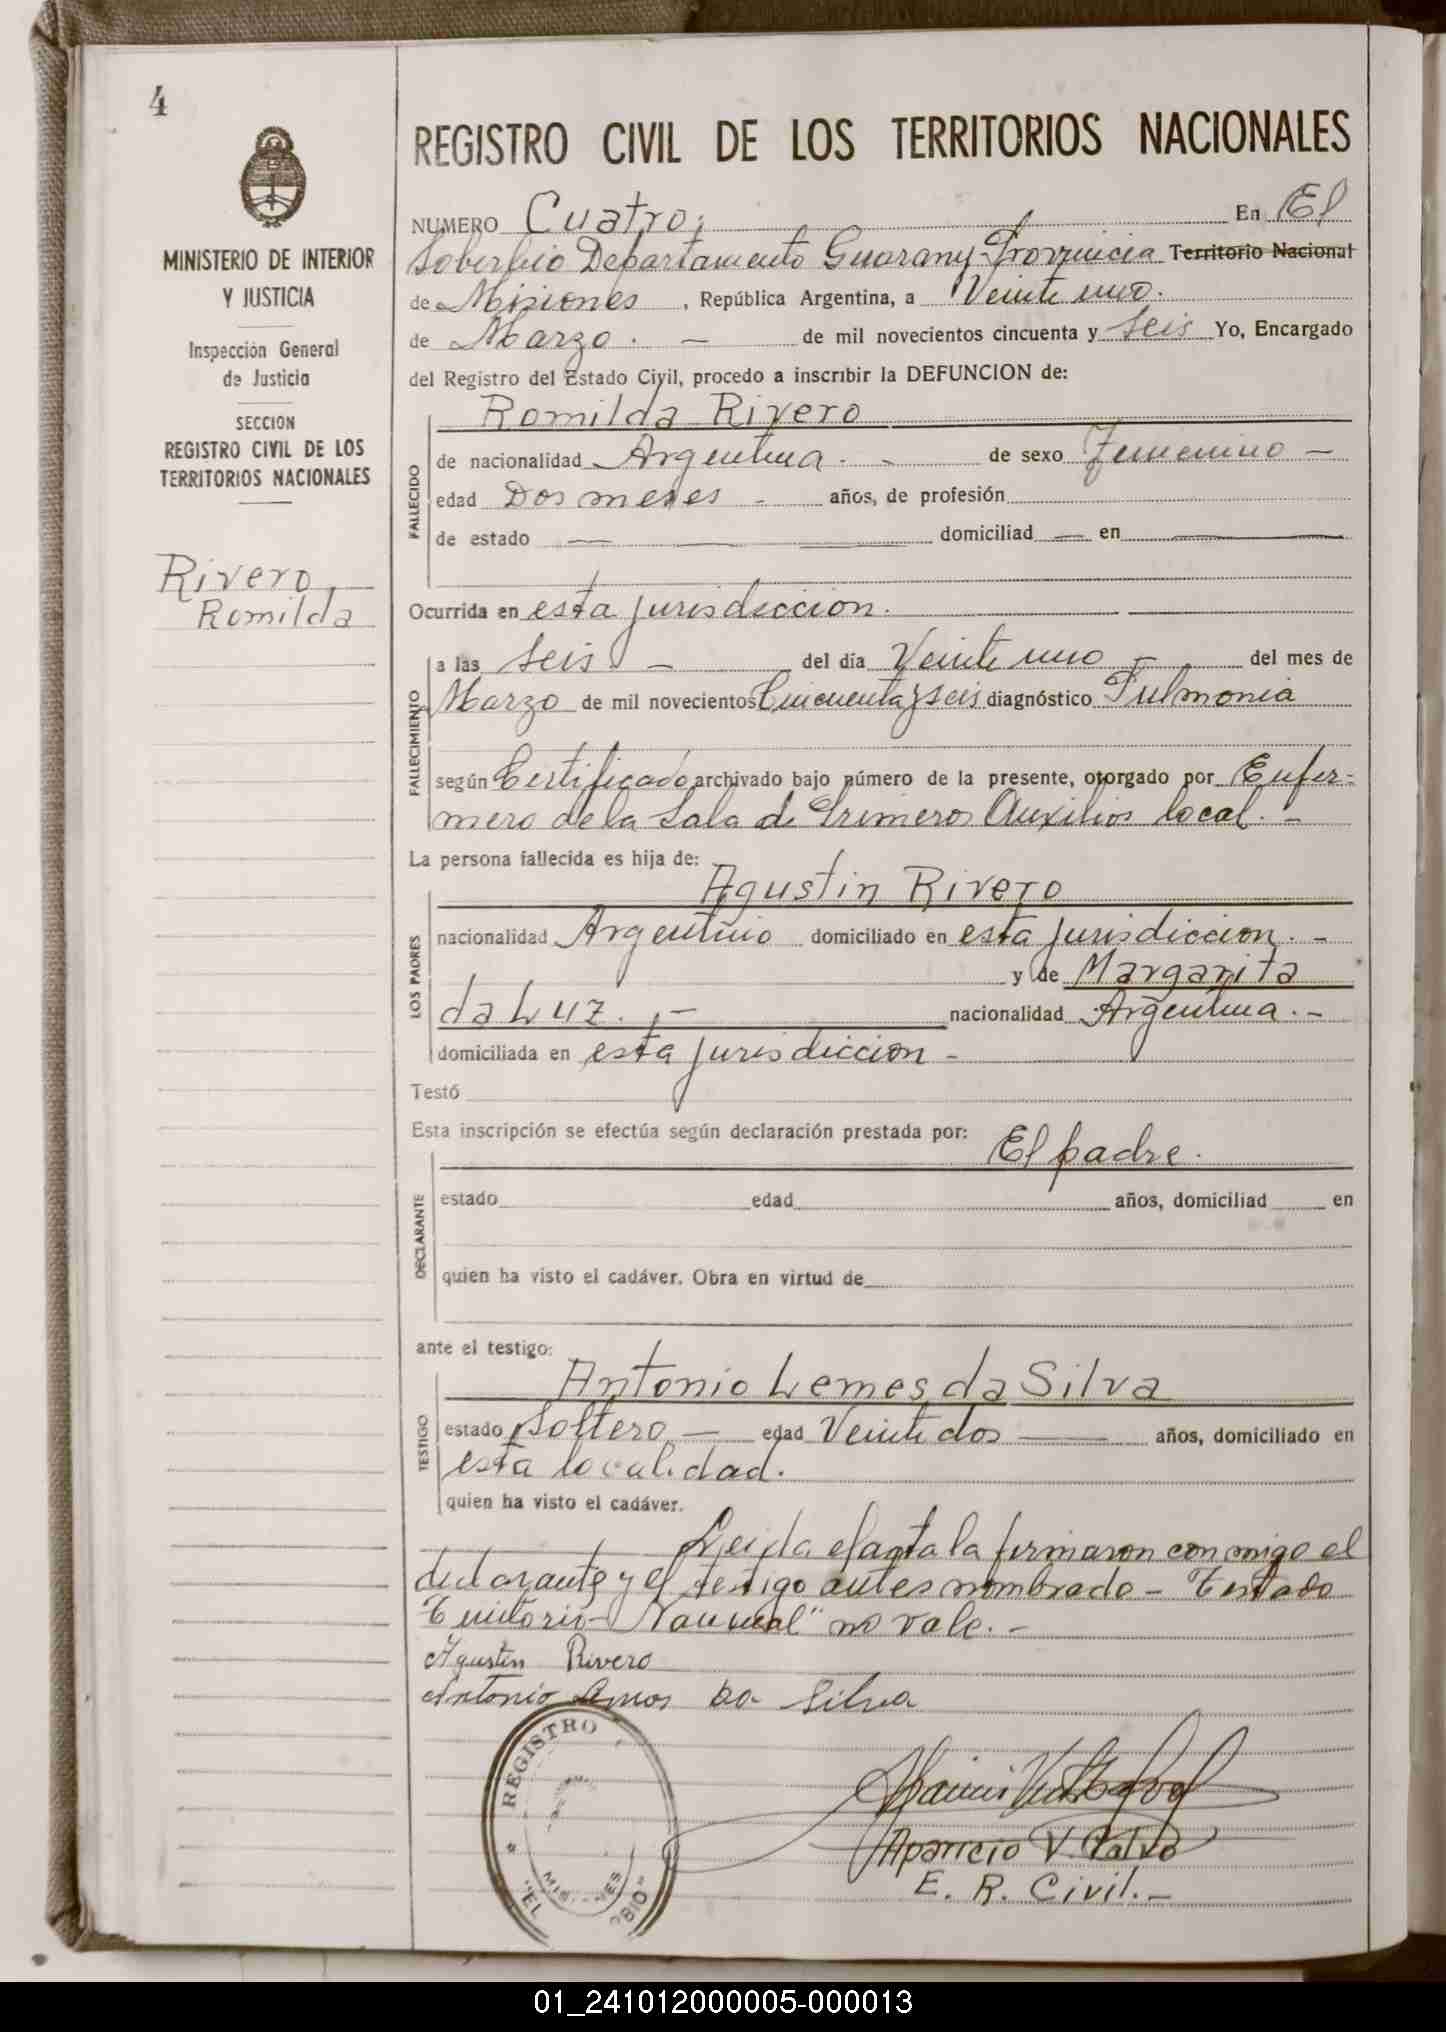 4
REGISTRO CIVIL DE LOS TERRITORIOS NACIONALES
MINISTERIO DE INTERIOR
Y JUSTICIA
Inspección General
de Justicia
SECCION
REGISTRO CIVIL DE LOS
TERRITORIOS NACIONALES
Rivero
Romilda
NUMERO Cuatro. En El
Soberbio Departamento Guarany-Provincia Territorio Nacional
de Misiones, República Argentina, a Veinte uno.
de Marzo. - de mil novecientos cincuenta y seis Yo, Encargado
del Registro del Estado Civil, procedo a inscribir la DEFUNCION de:
FALLECIDO
Romilda Rivero
de nacionalidad Argentina. - de sexo Femenino -
edad Dos meses - años, de profesión
de estado — domiciliad — en —
Ocurrida en esta jurisdiccion.
FALLECIMIENTO
a las seis - del día Veinte uno - del mes de
Marzo de mil novecientos Cincuenta y seis diagnóstico Pulmonia
según Certificado archivado bajo número de la presente, otorgado por Enfer=
mero de la Sala de Primeros Auxilios local. -
La persona fallecida es hija de:
LOS PADRES
Agustin Rivero
nacionalidad Argentino domiciliado en esta jurisdiccion. -
y de Margarita
da Luz. - nacionalidad Argentina. -
domiciliada en esta jurisdiccion -
Testó
Esta inscripción se efectúa según declaración prestada por: El padre.
DECLARANTE
estado edad años, domiciliad en
quien ha visto el cadáver. Obra en virtud de
ante el testigo:
TESTIGO
Antonio Lemes da Silva
estado Soltero — edad Veinte dos — años, domiciliado en
esta localidad.
quien ha visto el cadáver.
Leida el acta la firmaron con migo el
declarante y el testigo antes nombrado - Testado
"Territorio Nacional" no vale. -
Agustin Rivero
Antonio Lemos Da Silva
REGISTRO
"EL
OBIO"
Aparicio V. Calvo
E. R. Civil. -
01_241012000005-000013